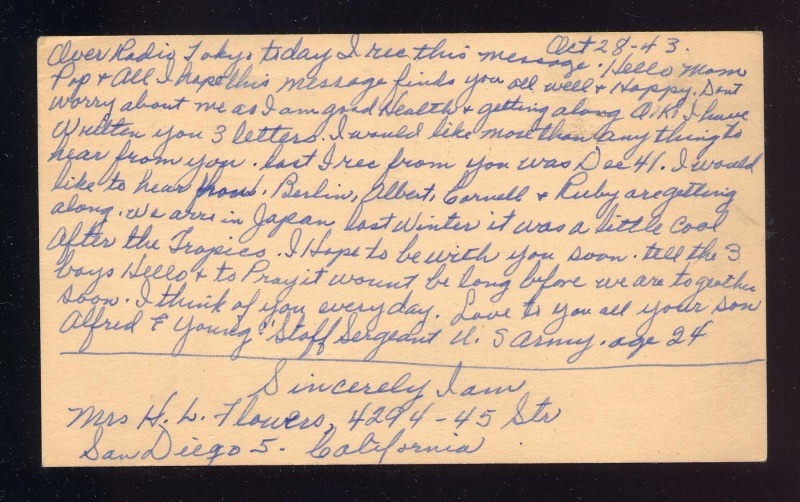 Oct 28-43.
Over Radio Tokyo today I rec this message. Hello Mom
Pop & All. I hope this message finds you all well & Happy. Dont
worry about me as I am good health & getting along O.K. I have
Written you 3 letters. I would like more than anything to
hear from you. last I rec from you was Dec 41. I would
like to hear how. Berlin, Albert, Cornell & Ruby are getting
along. We arre in Japan last Winter it was a little cool
After the Tropics. I Hope to be with you soon. tell the 3
boys Hello & to Pray it wount be long before we are together
soon. I think of you everyday. Love to you all your son
Alfred F Young." Staff Sergeant U. S Army. age 24
Sincerely I am
Mrs H. L. Flowers, 4294-45 Str
San Diego 5. California